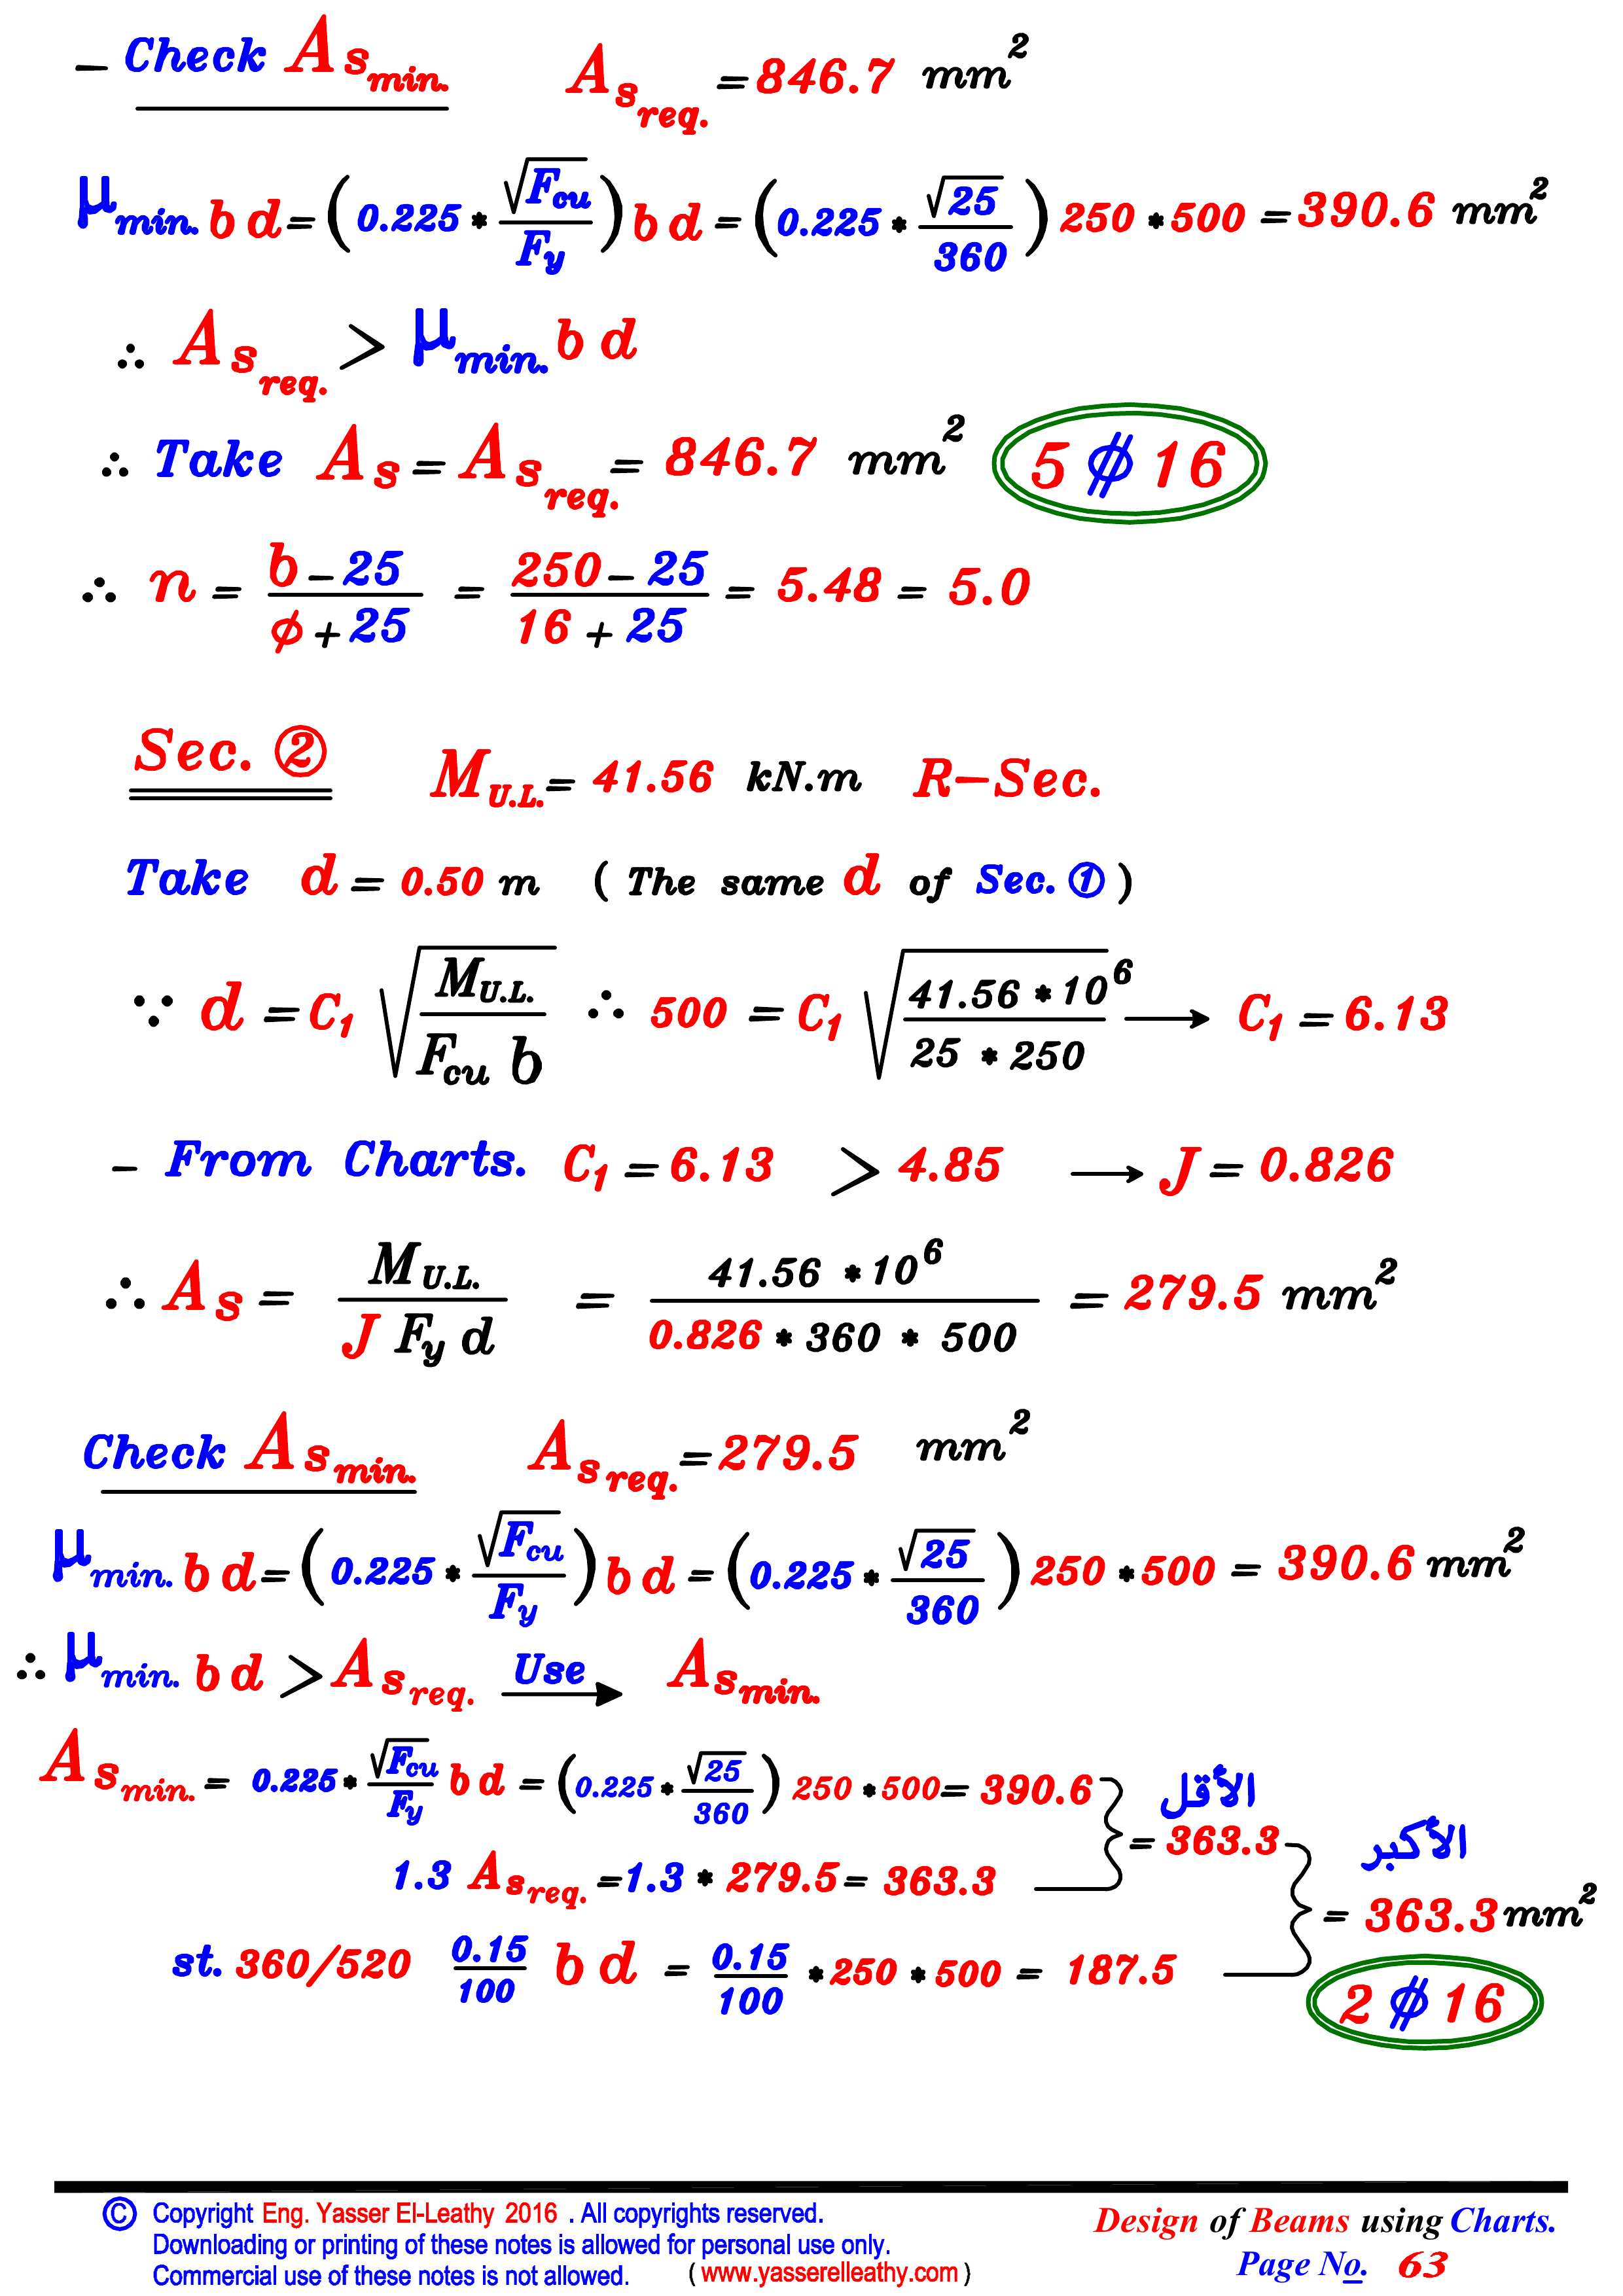 - Check As min. As req. = 846.7 mm²
μ min. b d = (0.225 * √Fcu / Fy) b d = (0.225 * √25 / 360) 250 * 500 = 390.6 mm²
∴ As req. > μ min. b d
∴ Take As = As req. = 846.7 mm² 5 ⏀ 16
∴ n = b - 25 / φ + 25 = 250 - 25 / 16 + 25 = 5.48 = 5.0
Sec. ② M U.L. = 41.56 kN.m R-Sec.
Take d = 0.50 m ( The same d of Sec. ① )
∵ d = C1 √(M U.L. / Fcu b) ∴ 500 = C1 √(41.56 * 10⁶ / 25 * 250) → C1 = 6.13
- From Charts. C1 = 6.13 > 4.85 → J = 0.826
∴ As = M U.L. / J Fy d = 41.56 * 10⁶ / 0.826 * 360 * 500 = 279.5 mm²
Check As min. As req. = 279.5 mm²
μ min. b d = (0.225 * √Fcu / Fy) b d = (0.225 * √25 / 360) 250 * 500 = 390.6 mm²
∴ μ min. b d > As req. Use → As min.
As min. = 0.225 * √Fcu / Fy b d = (0.225 * √25 / 360) 250 * 500 = 390.6 الأقل
1.3 As req. = 1.3 * 279.5 = 363.3 = 363.3 الأكبر
st. 360/520 0.15 / 100 b d = 0.15 / 100 * 250 * 500 = 187.5 = 363.3 mm²
2 ⏀ 16
© Copyright Eng. Yasser El-Leathy 2016 . All copyrights reserved.
Downloading or printing of these notes is allowed for personal use only.
Commercial use of these notes is not allowed. ( www.yasserelleathy.com )
Design of Beams using Charts.
Page No. 63